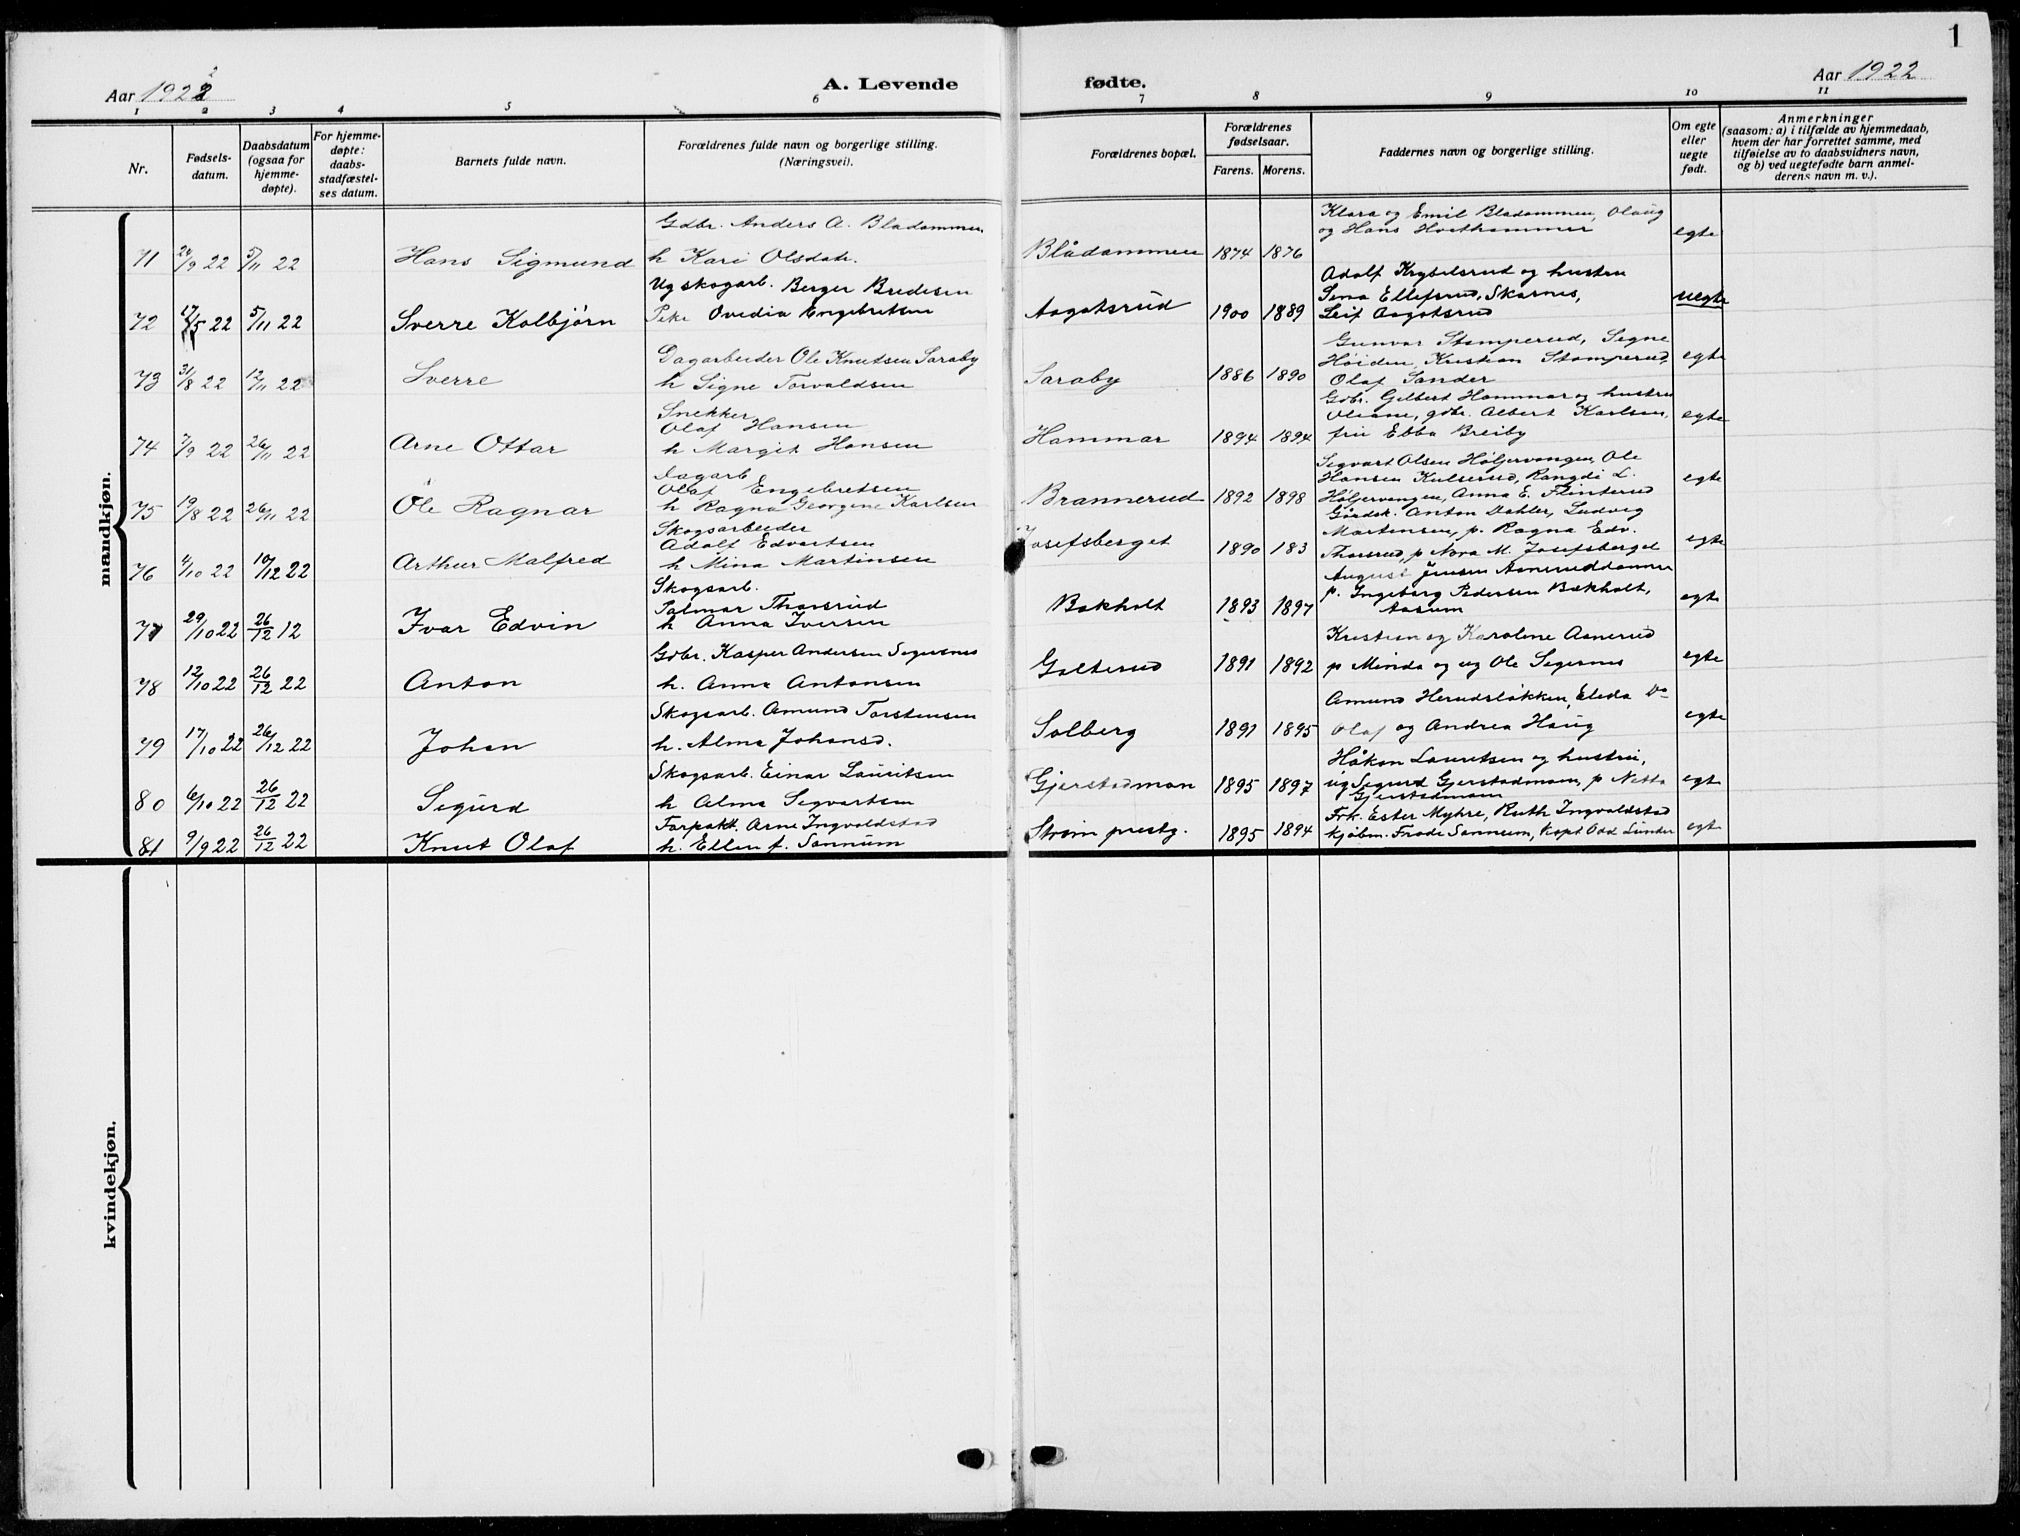 1
Aar 1922
A. Levende fødte.
Aar 1922
1 2 3 4 5 6 7 8 9 10 11
Nr.
Fødsels-
datum.
Daabsdatum
(ogsaa for
hjemme-
døpte).
For hjemme-
døpte:
daabs-
stadfæstel-
ses datum.
Barnets fulde navn.
Forældrenes fulde navn og borgerlige stilling.
(Næringsvei).
Forældrenes bopæl.
Forældrenes
fødselsaar.
Farens. Morens.
Faddernes navn og borgerlige stilling.
Om egte
eller
uegte
født.
Anmerkninger
(saasom: a) i tilfælde av hjemmedaab,
hvem der har forrettet samme, med
tilføielse av to daabsvidners navn,
og b) ved uegtefødte barn anmel-
derens navn m. v.).
mandkjøn.
71 24/9 22 5/11 22 Hans Sigmund
Gdbr. Anders A. Bladammen
h Kari Olsdatr.
Blådammen 1874 1876
Klara og Emil Bladammen, Olaug
og Hans Hvethammer
egte
72 17/5 22 5/11 22 Sverre Kolbjørn
Ug skogarb. Berger Bredesen
Pike Ovedia Engebretsen
Aagotsrud 1900 1889
Adolf Krybelsrud og hustru
Sena Ellefsrud, Skarnes,
Leif Aagotsrud
uegte
73 31/8 22 12/11 22 Sverre
Dagarbeider Ole Knutsen Saraby
h Signe Torvaldsen
Saraby 1886 1890
Gunvor Stomperud, Segne
Høiden, Kristian Stomperud,
Olaf Sander
egte
74 7/9 22 26/11 22 Arne Ottar
Snekker
Olaf Hansen
h Margit Hansen
Hammar 1894 1894
Gdbr. Gelbert Hammar og hustru
Oleane, gdbr. Albert Karlsen,
fru Ebba Breiby
egte
75 19/8 22 26/11 22 Ole Ragnar
Dagarb
Olaf Engebretsen
h Ragna Georgine Karlsen
Brannerud 1892 1898
Segvart Olsen Høljervangen, Ole
Hansen Kulserud, Rangdi L.
Høljervangen, Anna E. Flinterud
egte
76 4/10 22 10/12 22 Arthur Malfred
Skogsarbeider
Adolf Edvartsen
h Mina Martinsen
Josefsberget 1890 183
Gårdsk. Anton Dahler, Ludvig
Martensen, p. Ragna Edv.
Thorsrud, p Nora M. Josefsberget
egte
77 29/10 22 26/12 12 Ivar Edvin
Skogsarb.
Palmar Thorsrud
h Anna Iversen
Bakholt 1893 1897
August Jensen Aaneruddammen
p. Ingeborg Pedersen Bækholt,
Aasum
egte
78 12/10 22 26/12 22 Anton
Gdbr. Kasper Andersen Segersnes
h. Anna Antonsen
Golterud 1891 1892
Kristian og Karolene Aanerud
p Minda og ug Ole Segersnes
egte
79 17/10 22 26/12 22 Johan
Skogsarb. Amund Torstensen
h. Alma Johansd.
Solberg 1891 1895
Amund Herudsløkken, Eleda Do
Olaf og Andrea Haug
egte
80 6/10 22 26/12 22 Segurd
Skogsarb. Einar Lauritsen
h Alma Segvartsen
Gjerstadmon 1895 1897
Håkon Lauritsen og hustru,
ug Segurd Gjerstadmoen, p Netta
Gjerstadmoen
egte
81 9/9 22 26/12 22 Knut Olaf
Forpakt. Arne Ingvoldstad
h. Ellen f. Sannum
Strøm prestg. 1895 1894
Frk. Ester Myhre, Ruth Ingvoldstad
kjøbm. Frode Sannum, Kapt Odd Lunder
egte
kvindekjøn.